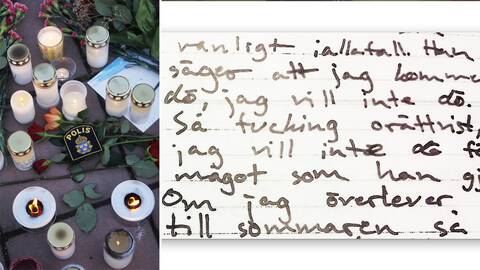 POLIS
vanligt iallafall. Han
säger att jag komme
dö, jag vill inte dö.
Så fucking orättvist,
jag vill inte dö fö
något som han gj
Om jag överlever
till sommaren så